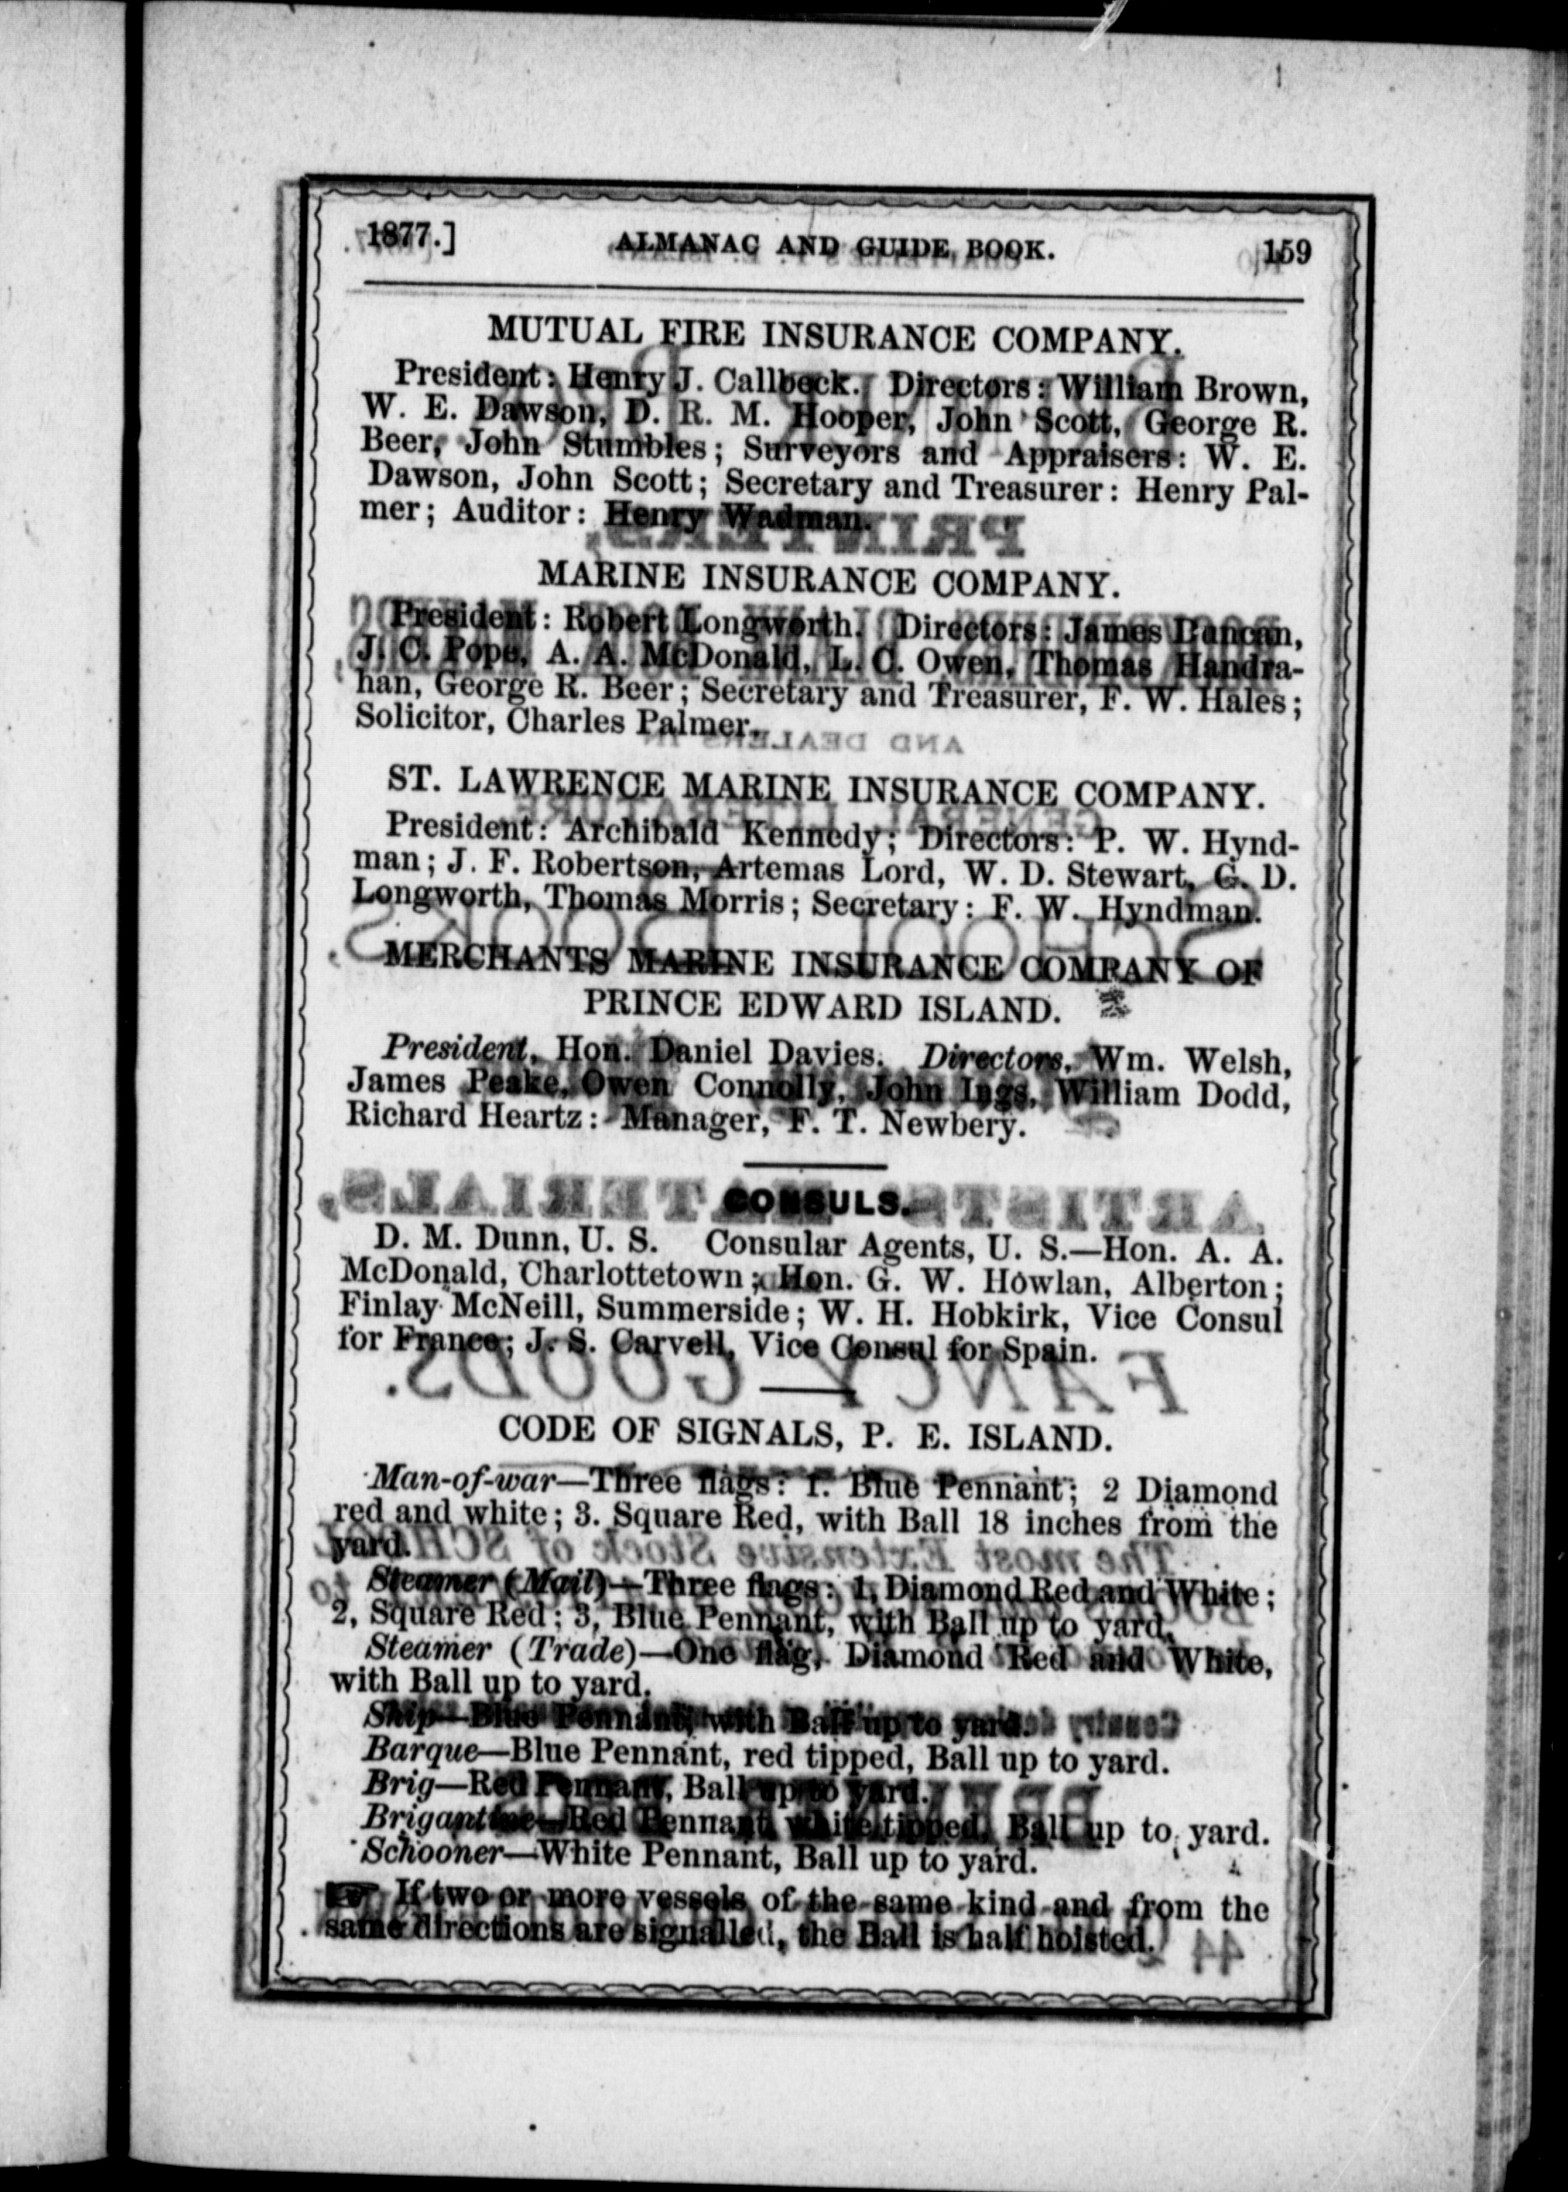 1877.] ALMANAC AND GUIDE BOOK. 159
MUTUAL FIRE INSURANCE COMPANY.
President: Henry J. Callbeck. Directors: William Brown,
W. E. Dawson, D. R. M. Hooper, John Scott, George R.
Beer, John Stumbles; Surveyors and Appraisers: W. E.
Dawson, John Scott; Secretary and Treasurer: Henry Pal-
mer; Auditor: Henry Wadman.
MARINE INSURANCE COMPANY.
President: Robert Longworth. Directors: James Duncan,
J. C. Pope, A. A. McDonald, L. C. Owen, Thomas Handra-
han, George R. Beer; Secretary and Treasurer, F. W. Hales;
Solicitor, Charles Palmer.
ST. LAWRENCE MARINE INSURANCE COMPANY.
President: Archibald Kennedy; Directors: P. W. Hynd-
man; J. F. Robertson, Artemas Lord, W. D. Stewart, G. D.
Longworth, Thomas Morris; Secretary: F. W. Hyndman.
MERCHANTS MARINE INSURANCE COMPANY OF
PRINCE EDWARD ISLAND.
President, Hon. Daniel Davies. Directors, Wm. Welsh,
James Peake, Owen Connolly, John Ings, William Dodd,
Richard Heartz: Manager, F. T. Newbery.
CONSULS.
D. M. Dunn, U. S. Consular Agents, U. S.—Hon. A. A.
McDonald, Charlottetown; Hon. G. W. Howlan, Alberton;
Finlay McNeill, Summerside; W. H. Hobkirk, Vice Consul
for France; J. S. Carvell, Vice Consul for Spain.
CODE OF SIGNALS, P. E. ISLAND.
Man-of-war—Three flags: 1. Blue Pennant; 2 Diamond
red and white; 3. Square Red, with Ball 18 inches from the
yard.
Steamer (Mail)—Three flags: 1, Diamond Red and White;
2, Square Red; 3, Blue Pennant, with Ball up to yard.
Steamer (Trade)—One flag, Diamond Red and White,
with Ball up to yard.
Ship—Blue Pennant, with Ball up to yard.
Barque—Blue Pennant, red tipped, Ball up to yard.
Brig—Red Pennant, Ball up to yard.
Brigantine—Red Pennant, white tipped, Ball up to yard.
Schooner—White Pennant, Ball up to yard.
☞ If two or more vessels of the same kind and from the
same directions are signalled, the Ball is half hoisted.